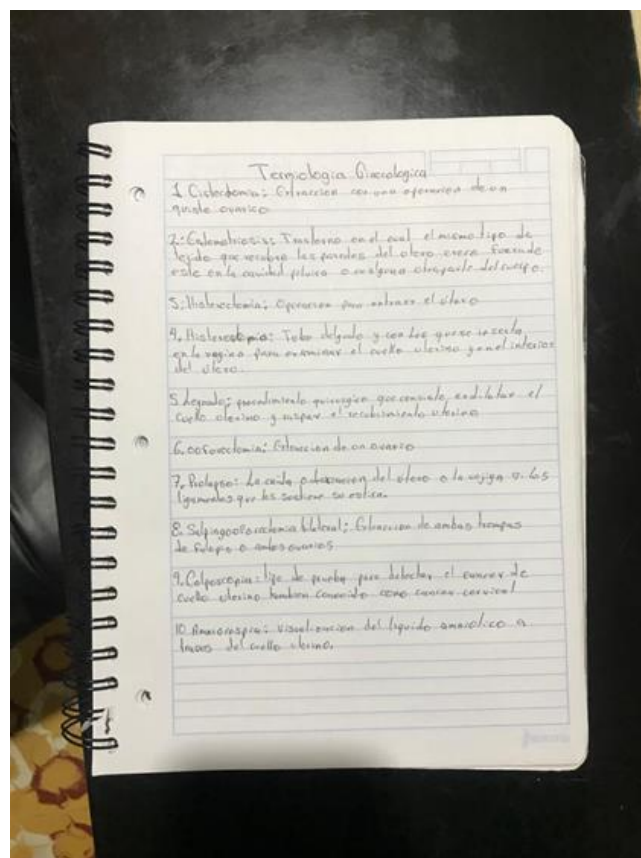 Termiologia Ginecologica
1 Cistectomia: Extraccion con una operacion de un
quiste ovarico
2.: Endometriosis: Trastorno en el cual el mismo tipo de
tejido que recubre las paredes del utero crece fuera de
este en la cavidad pelvica o en alguna otra parte del cuerpo.
3: Histerectomia: Operacion para extraer el utero
4. Histeroscopia: Tubo delgado y con luz que se inserta
en la vagina para examinar el cuello uterino y en el interior
del utero.
5 Legrado: procedimiento quirurgico que consiste en dilatar el
cuello uterino y raspar el recubrimiento uterino
6. ooforectomia: Extraccion de un ovario
7. Prolapso: La caida o del utero o la vejiga a los
ligamentos que los sostiene se estira.
8. Salpingooforectomia bilateral: Extraccion de ambas trompas
de falopio o ambos ovarios
9. Colposcopia: tipo de prueba para detectar el cancer de
cuello uterino tambien conocido como cancer cervical
10. Amnioscopia: Visualizacion del liquido amniotico a
traves del cuello uterino.